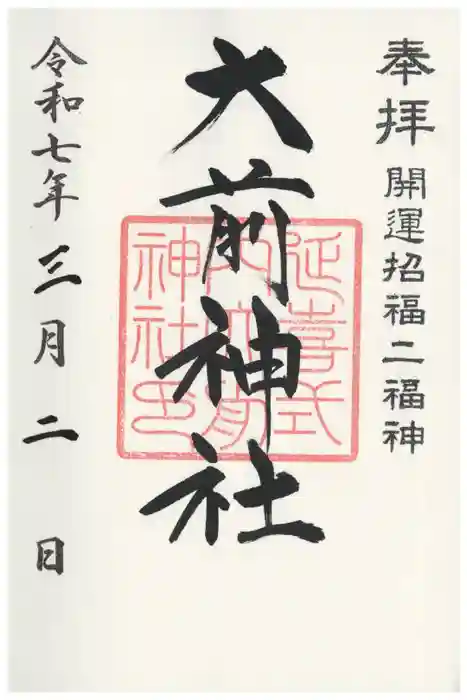 奉拝
開運招福二福神
大前神社
延喜式
内大前
神社印
令和七年三月二日